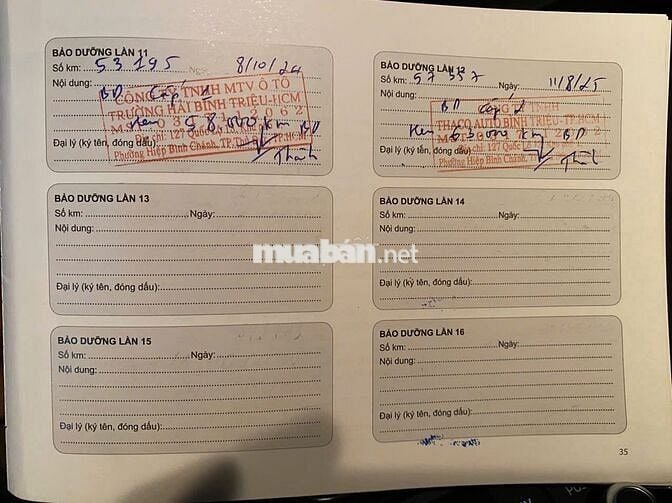 BẢO DƯỠNG LẦN 11
Số km: 53195 Ngày: 8/10/24
Nội dung: BD Cấp 1
CÔNG TY TNHH MTV Ô TÔ
TRƯỜNG HẢI BÌNH TRIỆU-HCM
Hẹn 58.000 km BD
Địa chỉ: 127 Quốc Lộ
Đại lý (ký tên, đóng dấu)
Phường Hiệp Bình Chánh, TP.HCM
Thành
BẢO DƯỠNG LẦN 12
Số km: 57337 Ngày: 11/8/25
Nội dung: BD Cấp
TNHH
THACO AUTO BÌNH TRIỆU-TP.HCM
Hẹn 63.000 km BD
Địa chỉ: 127 Quốc Lộ
Đại lý (ký tên, đóng dấu)
Phường Hiệp Bình Chánh,
BẢO DƯỠNG LẦN 13
Số km: Ngày:
Nội dung:
Đại lý (ký tên, đóng dấu)
BẢO DƯỠNG LẦN 14
Số km: Ngày:
Nội dung:
Đại lý (ký tên, đóng dấu)
muaban.net
BẢO DƯỠNG LẦN 15
Số km: Ngày:
Nội dung:
Đại lý (ký tên, đóng dấu)
BẢO DƯỠNG LẦN 16
Số km: Ngày:
Nội dung:
Đại lý (ký tên, đóng dấu)
35